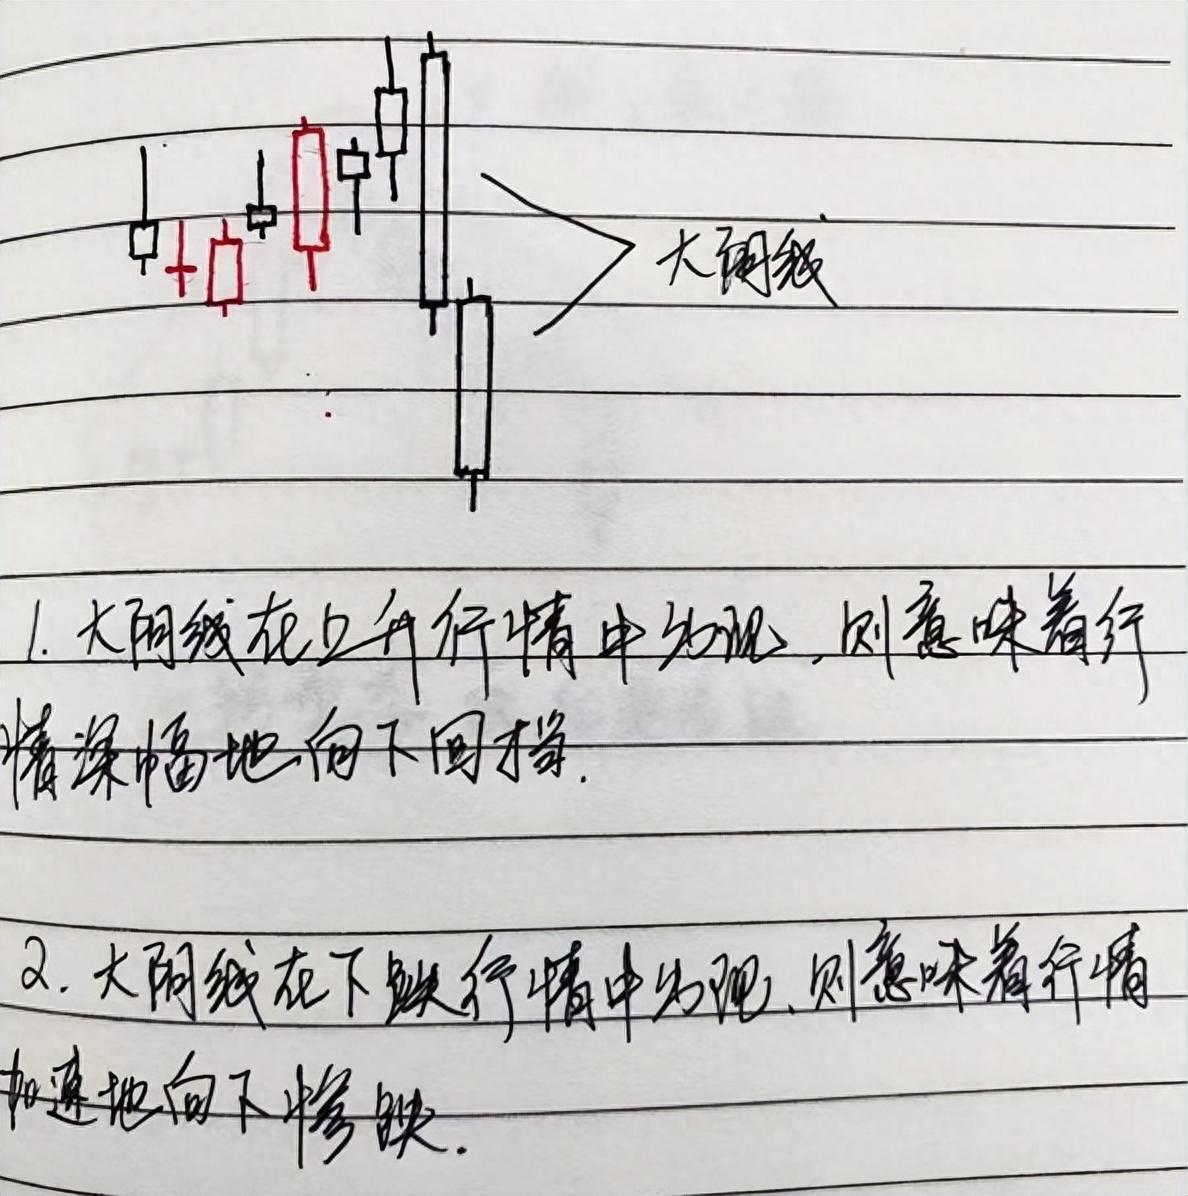 大阴线
1. 大阴线在上升行情中出现,则意味着行
情深幅地向下回档.
2. 大阴线在下跌行情中出现,则意味着行情
加速地向下惨跌.